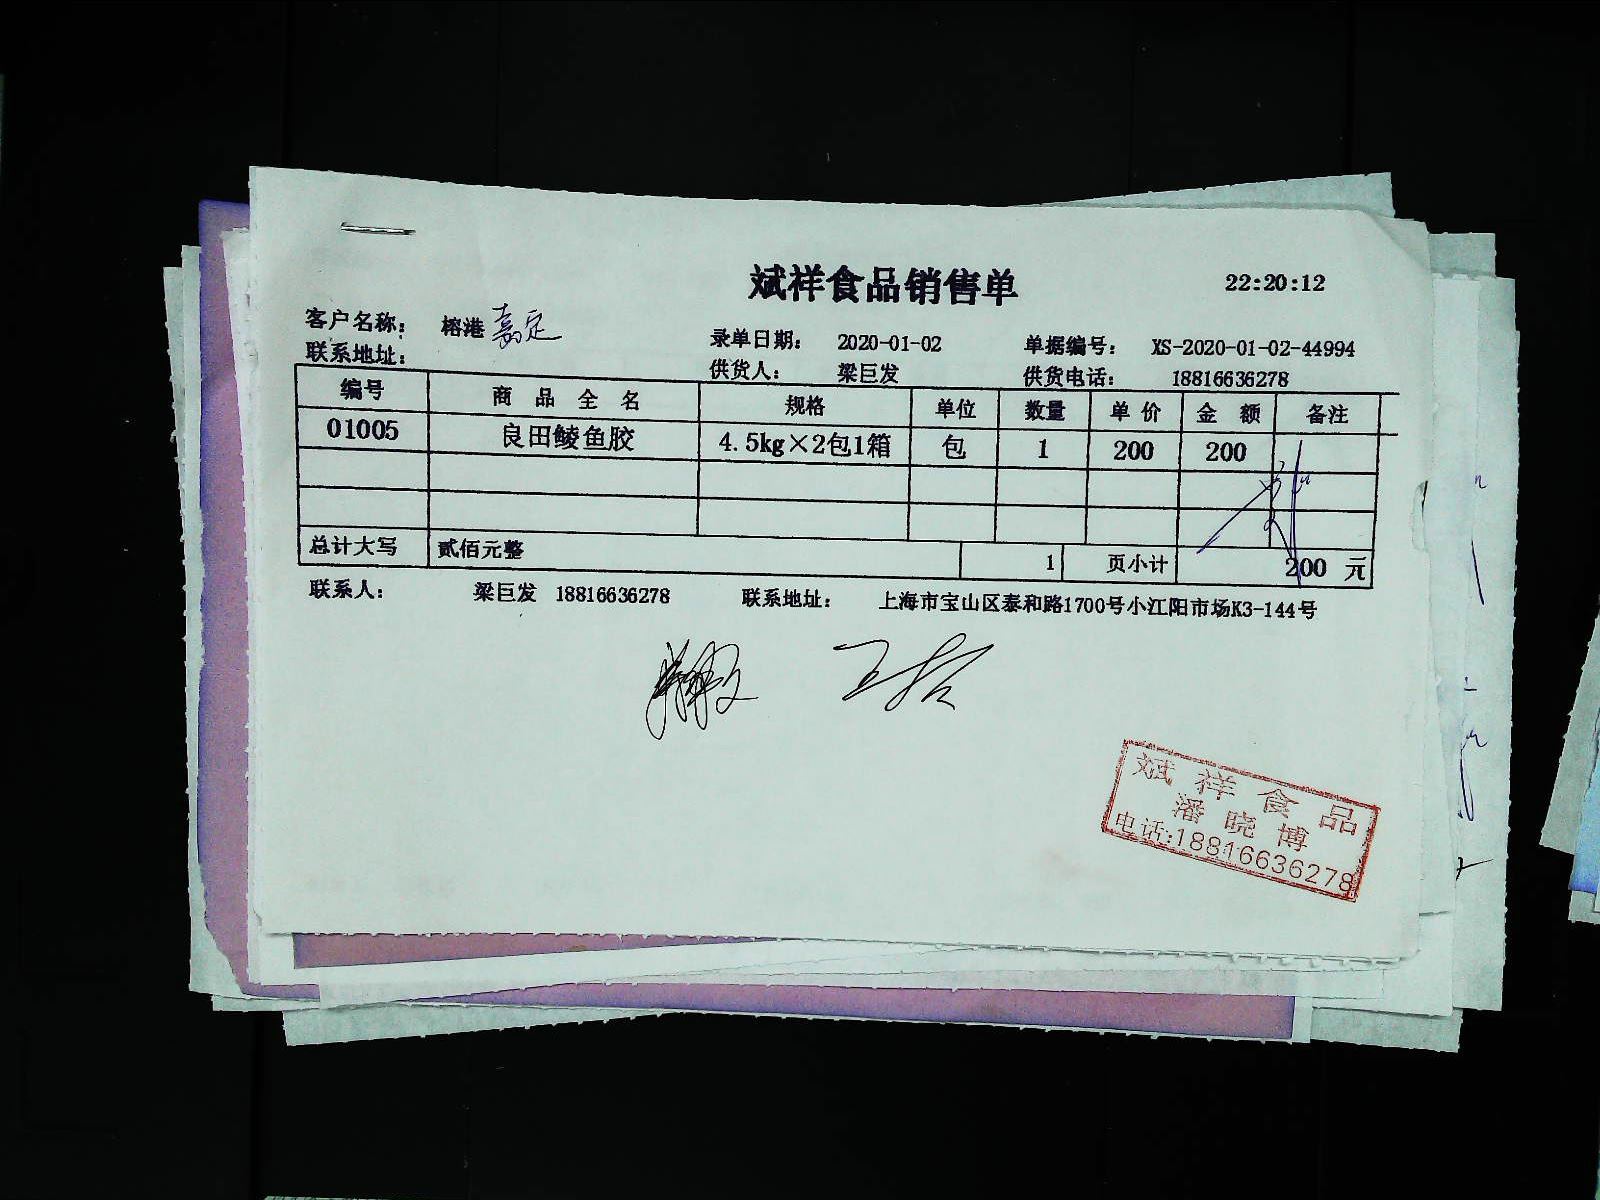 斌祥食品销售单
22:20:12
客户名称： 榕港 嘉定
录单日期： 2020-01-02
单据编号： XS-2020-01-02-44994
联系地址：
供货人： 梁巨发
供货电话： 18816636278
编号 商品全名 规格 单位 数量 单价 金额 备注
01005 良田鲮鱼胶 4.5kg×2包1箱 包 1 200 200
总计大写 贰佰元整 1 页小计 200 元
联系人： 梁巨发 18816636278 联系地址： 上海市宝山区泰和路1700号小江阳市场K3-144号
斌祥食品
潘晓博
电话:18816636278